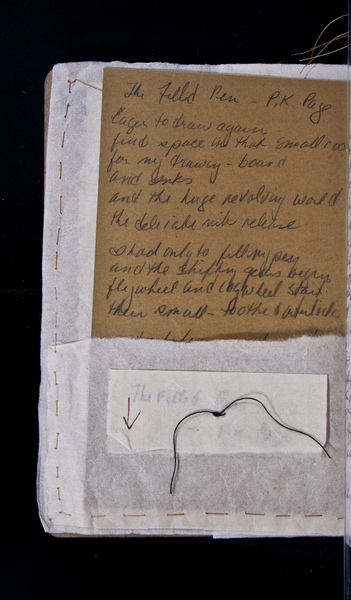 The Filled Pen - P.K. Page
Eager to draw again
find space in that small
for my drawing-board
and inks
and the huge revolving world
the delicate nib release
I had only to fill my pen
and the shifting gears begin
flywheel and cogwheel start
their small-toothed interlock
The Fill